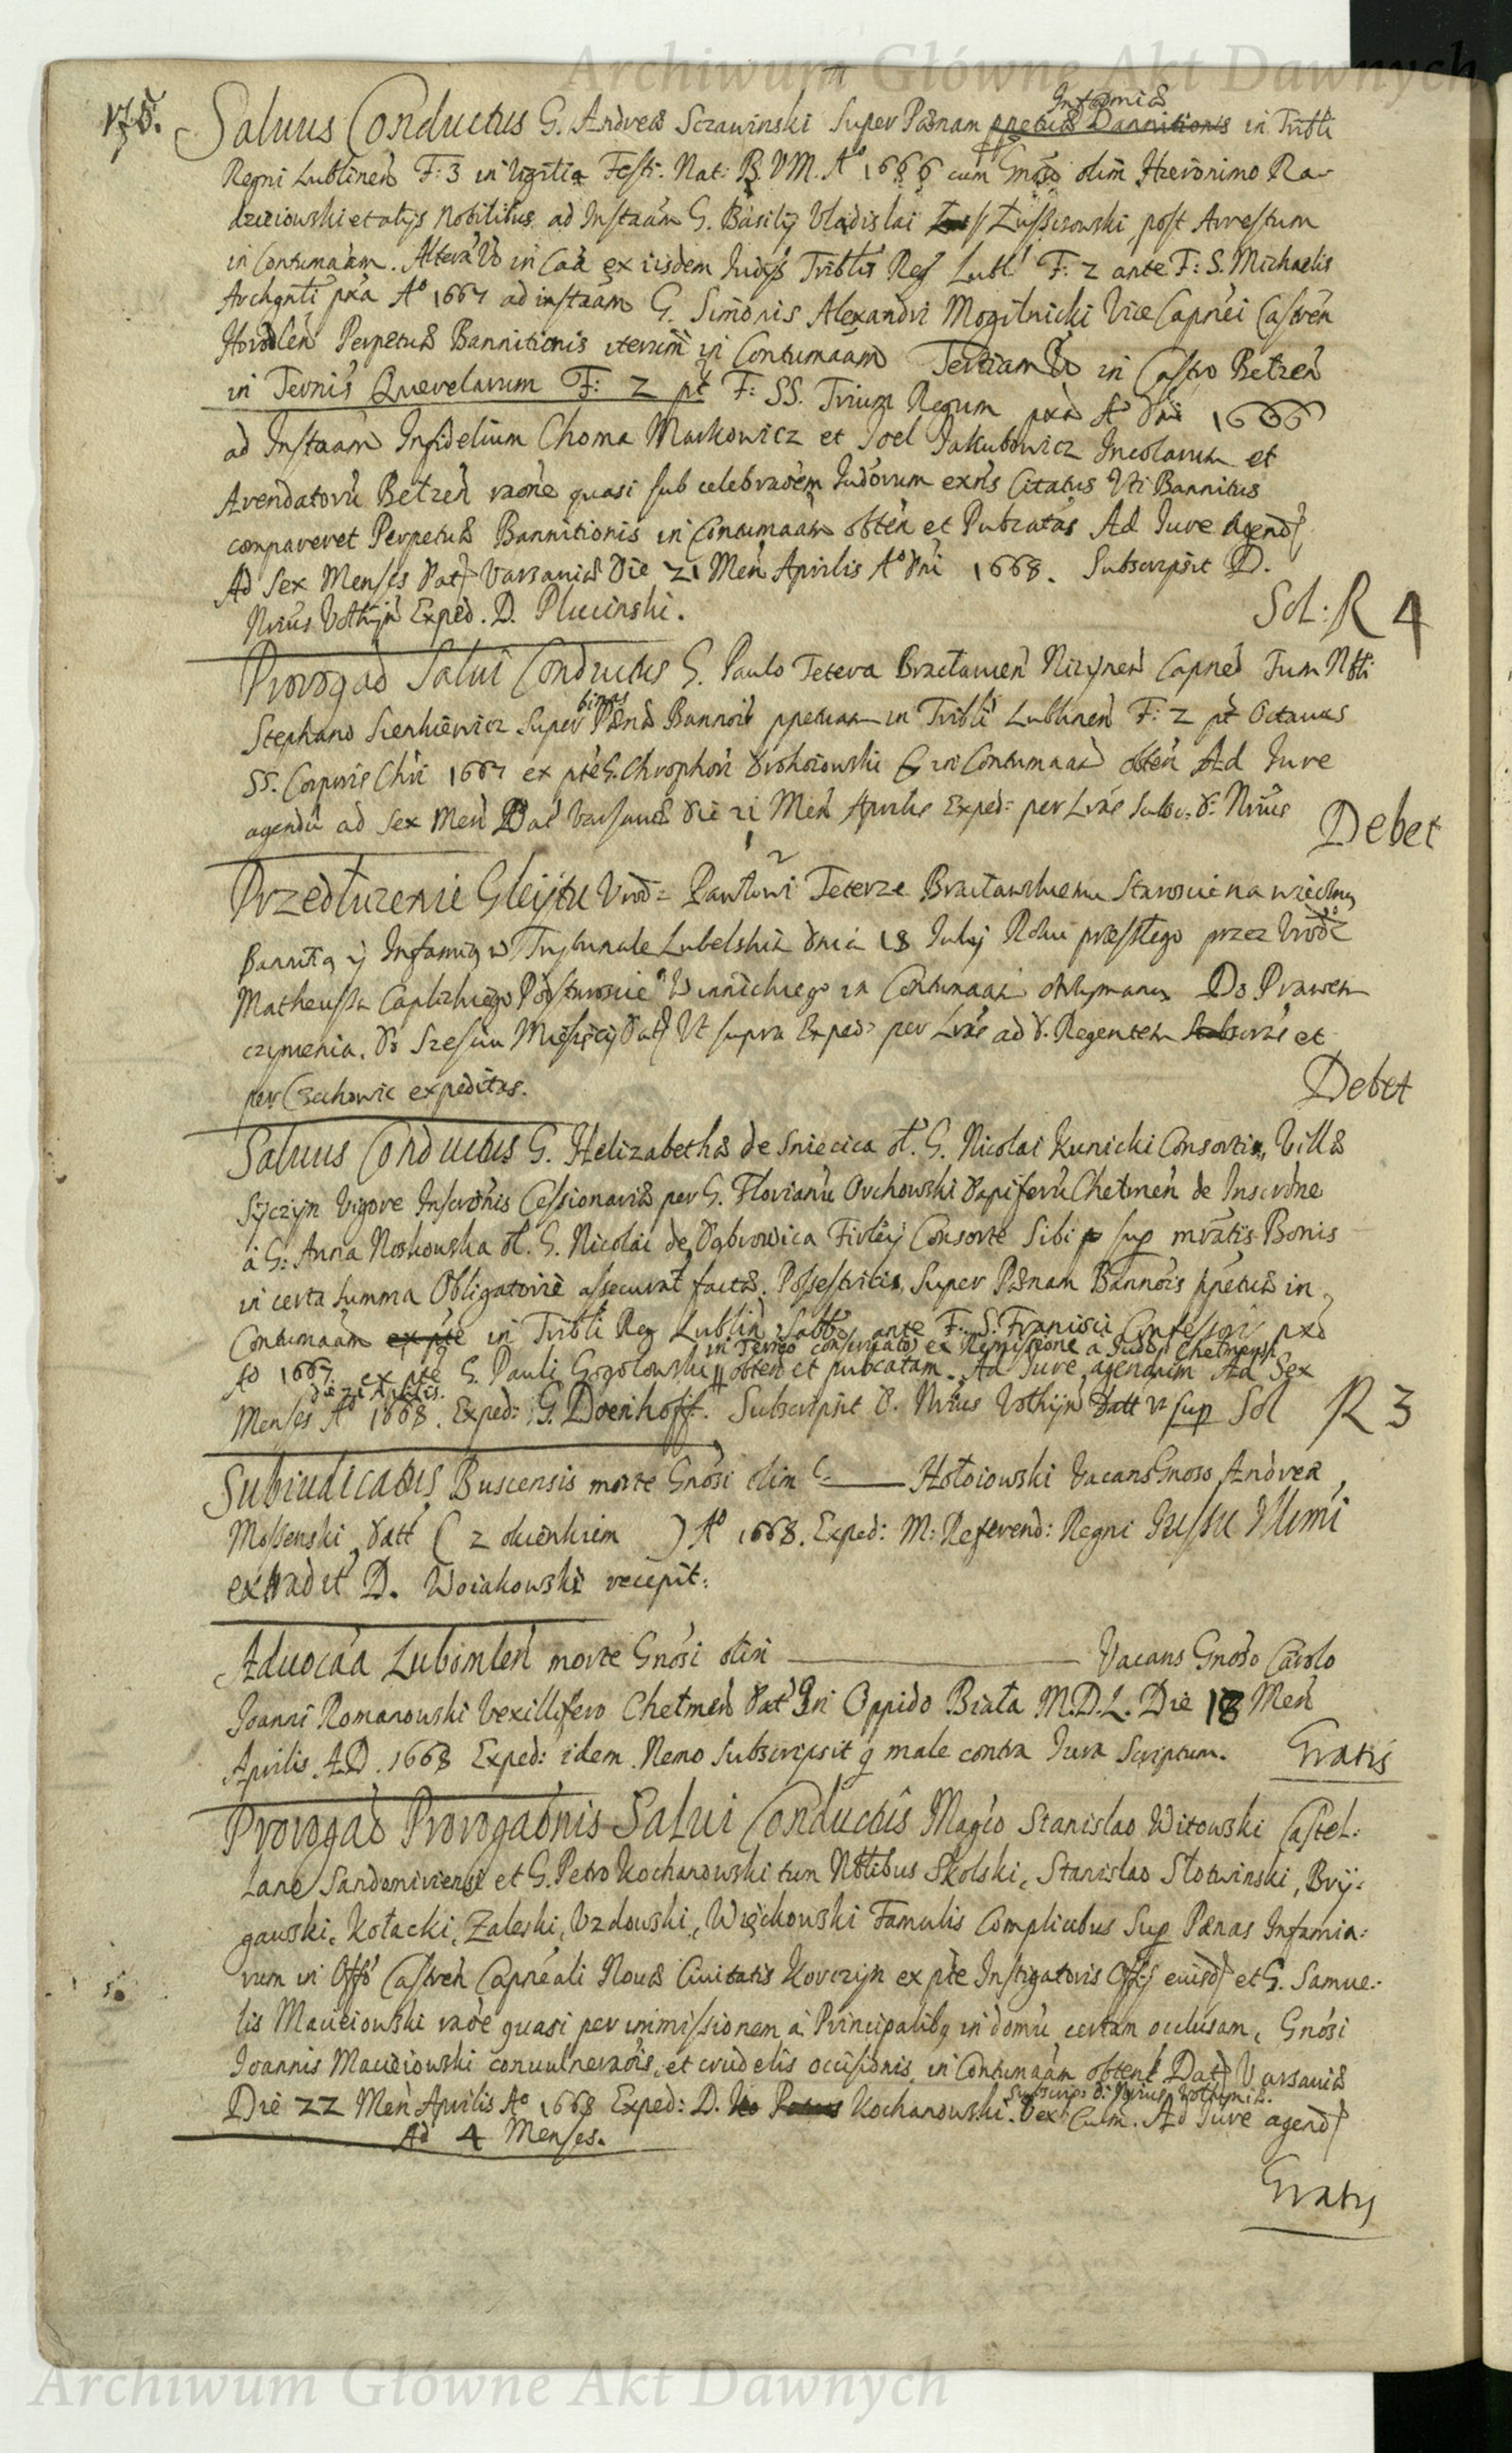 Archiwum Główne Akt Dawnych
175.
Saluus Conductus G. Andreæ Sczawinski Super Pænam ppetuæ Bannitionis Infamiæ in Tribli
Regni Lublinen F: 3 in Vigilia Festi. Nat: B. V M. Aº 1666 cum Gnoso olim Hieronimo Ra-
dzieiowski et alijs Nobilibus ad Instaãm G. Basilij Vladislai Zussczowski post Arrestum
in Contumaãm. Altera Vo in Caã ex iisdem Iudijs Triblis Reg Lubl F: 2 ante F: S. Michaelis
Archgnli pxa Aº 1667 ad instaãm G. Simonis Alexandri Mogilnicki Vice Capnei Castren
Horodlen Perpetuæ Bannitionis iterum in Contumaãm Tertiam Vo in Castro Betzen
in Ternis Querelarum F: 2 pt F: SS. Trium Regum pxa Aº Dni 1666
ad Instaãm Infidelium Choma Markowicz et Joel Jakubowicz Incolarum et
Arendatoru Betzen raone quasi sub celebraoem Iudiorum exns Citatus Vti Bannitus
compareret Perpetuæ Bannitionis in Contumaãm obten et Publcatas Ad Iure agend
Ad Sex Menses Dat Varsaviæ Die 21 Men Aprilis Aº Dni 1668. Subscripsit D.
Nrius Vothijn Exped. D. Plucinski.
Sol: R 4
Prorogaõ Salui Conductus G. Paulo Tetera Bracłauien Nizynen Capneo Tum Nbli
Stephano Sienkiewicz Super binas Pænas Bannois ppetuam in Tribli Lublinen F: 2 pt Octauas
SS. Corporis Chri 1667 ex pte G. Chrophori Drohoiowski in Contumaãm obten Ad Iure
agendu ad Sex Men Dat Varsauiæ Die 21 Men Aprilis Exped: per Lras Subscr. D. Nrius
Debet
Przedłuzenie Gleijtu Vrod: Pawłowi Teterze Bracławskiemu Staroscie na wieczną
Bannitią ij Infamią w Trijbunale Lubelskim dnia 18 Julij Roku przeszłego przez Vrodz
Matheusza Caplickiego Podstaroscie Winnickiego in Contumaãm otrzymaną Do Prawem
czynienia. Do Szesciu Miesięcij Dat Vt supra Exped: per Lras ad D. Regentem scras et
per Czechowic expeditas.
Debet
Saluus Conductus G. Helizabethæ de Sniecica ol. G. Nicolai Kunicki Consortis, Villæ
Sijczijn Vigore Inscronis Cessionariæ per G. Florianu Orchowski Dapiferu Chełmen de Inscrone
à G: Anna Noskowska ol. G. Nicolai de Dąbrowica Firleij Consorte Sibi sup mratis Bonis
in certa Summa Obligatorie assecurat facta. Possestricis, Super Pænam Bannois ppetuæ in
Contumaãm ex pte in Tribli Reg Lublin Sabbo ante F. S. Francisci Confessoris pxo
in Termo conseruatos ex Remissione a Iudijs Chelmensi
Aº 1667. ex pte G. Pauli Gozolowski obten et publcatam. Ad Iure agendum Ad Sex
die 21 Aprilis.
Menses Aº 1668. Exped: G. Doenhoff. Subscripsit D. Nrius Vothijn Datt vt sup Sol R 3
Subiudicatus Buscensis morte Gnosi olim G. — Hołoiowski Vacans Gnoso Andreæ
Mossenski Datt ( z okienkiem ) Aº 1668. Exped: M: Referend: Regni Iussu Illmi
extradit D. Woiakowski recepit.
Aduocaã Lubomlen morte Gnosi olim — Vacans Gnoso Carolo
Joanni Romanowski Vexillifero Chełmen Dat In Oppido Biała M.D.L. Die 18 Men
Aprilis A.D. 1668 Exped: idem. Nemo Subscripsit q male contra Iura Scriptum. Gratis
Prorogaõ Prorogaõnis Salui Conductûs Magco Stanislao Witowski Castel:
lano Sandomiriensi et G. Petro Kochanowski tum Nblibus Skolski, Stanislao Słotwinski, Brij-
gauski, Kołacki, Zaleski, Vzdowski, Więckowski Famulis Complicibus Sup Pænas Infamia-
rum in Offo Castren Capneali Nouæ Ciuitatis Korczijn ex pte Instigatoris Offij eiusd et G. Samue-
lis Macieiowski raõe quasi per immissionem à Principalibq in domu certam occlusam, Gnosi
Joannis Macieiowski conuulneraois, et crudelis occisionis, in Contumaãm obtent Dat Varsauiæ
Subscrip: D. Nrius Vothiniæ.
Die 22 Men Aprilis Aº 1668 Exped: D. Kochanowski. Vex Cum. Ad Iure agend
Ad 4 Menses.
Gratis
Archiwum Główne Akt Dawnych